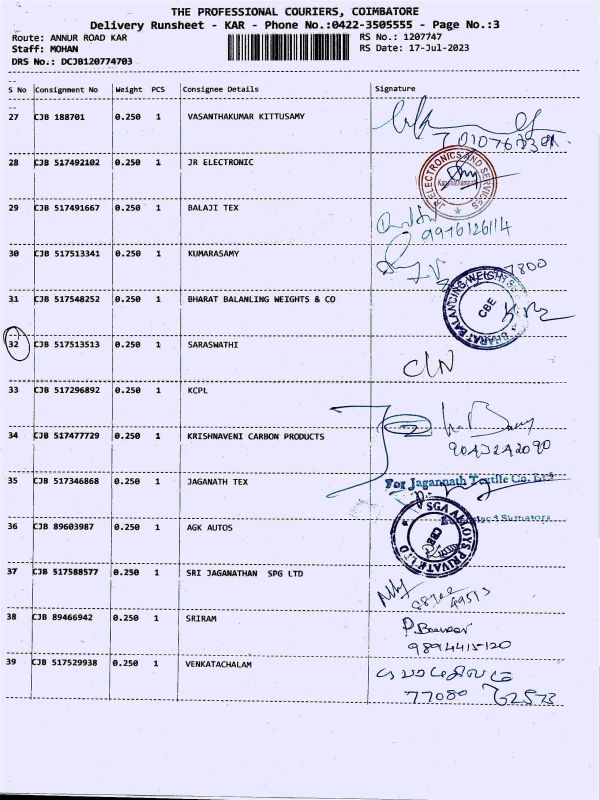 THE PROFESSIONAL COURIERS, COIMBATORE
Delivery Runsheet - KAR - Phone No.:0422-3505555 - Page No.:3
Route: ANNUR ROAD KAR RS No.: 1207747
Staff: MOHAN RS Date: 17-Jul-2023
DRS No.: DCJB120774703
S No Consignment No Weight PCS Consignee Details Signature
27 CJB 188701 0.250 1 VASANTHAKUMAR KITTUSAMY
28 CJB 517492102 0.250 1 JR ELECTRONIC
JR ELECTRONICS AND SERVICES
29 CJB 517491667 0.250 1 BALAJI TEX
9916126114
30 CJB 517513341 0.250 1 KUMARASAMY
7800
31 CJB 517548252 0.250 1 BHARAT BALANLING WEIGHTS & CO
BHARAT BALANCING WEIGHTS
CBE
32 CJB 517513513 0.250 1 SARASWATHI
C/N
33 CJB 517296892 0.250 1 KCPL
34 CJB 517477729 0.250 1 KRISHNAVENI CARBON PRODUCTS
35 CJB 517346868 0.250 1 JAGANATH TEX
For Jagannath Textile Co.
36 CJB 89603987 0.250 1 AGK AUTOS
SGA ALLOYS PRIVATE LTD
CBE
37 CJB 517588577 0.250 1 SRI JAGANATHAN SPG LTD
38 CJB 89466942 0.250 1 SRIRAM
9894415120
39 CJB 517529938 0.250 1 VENKATACHALAM
77080 62573